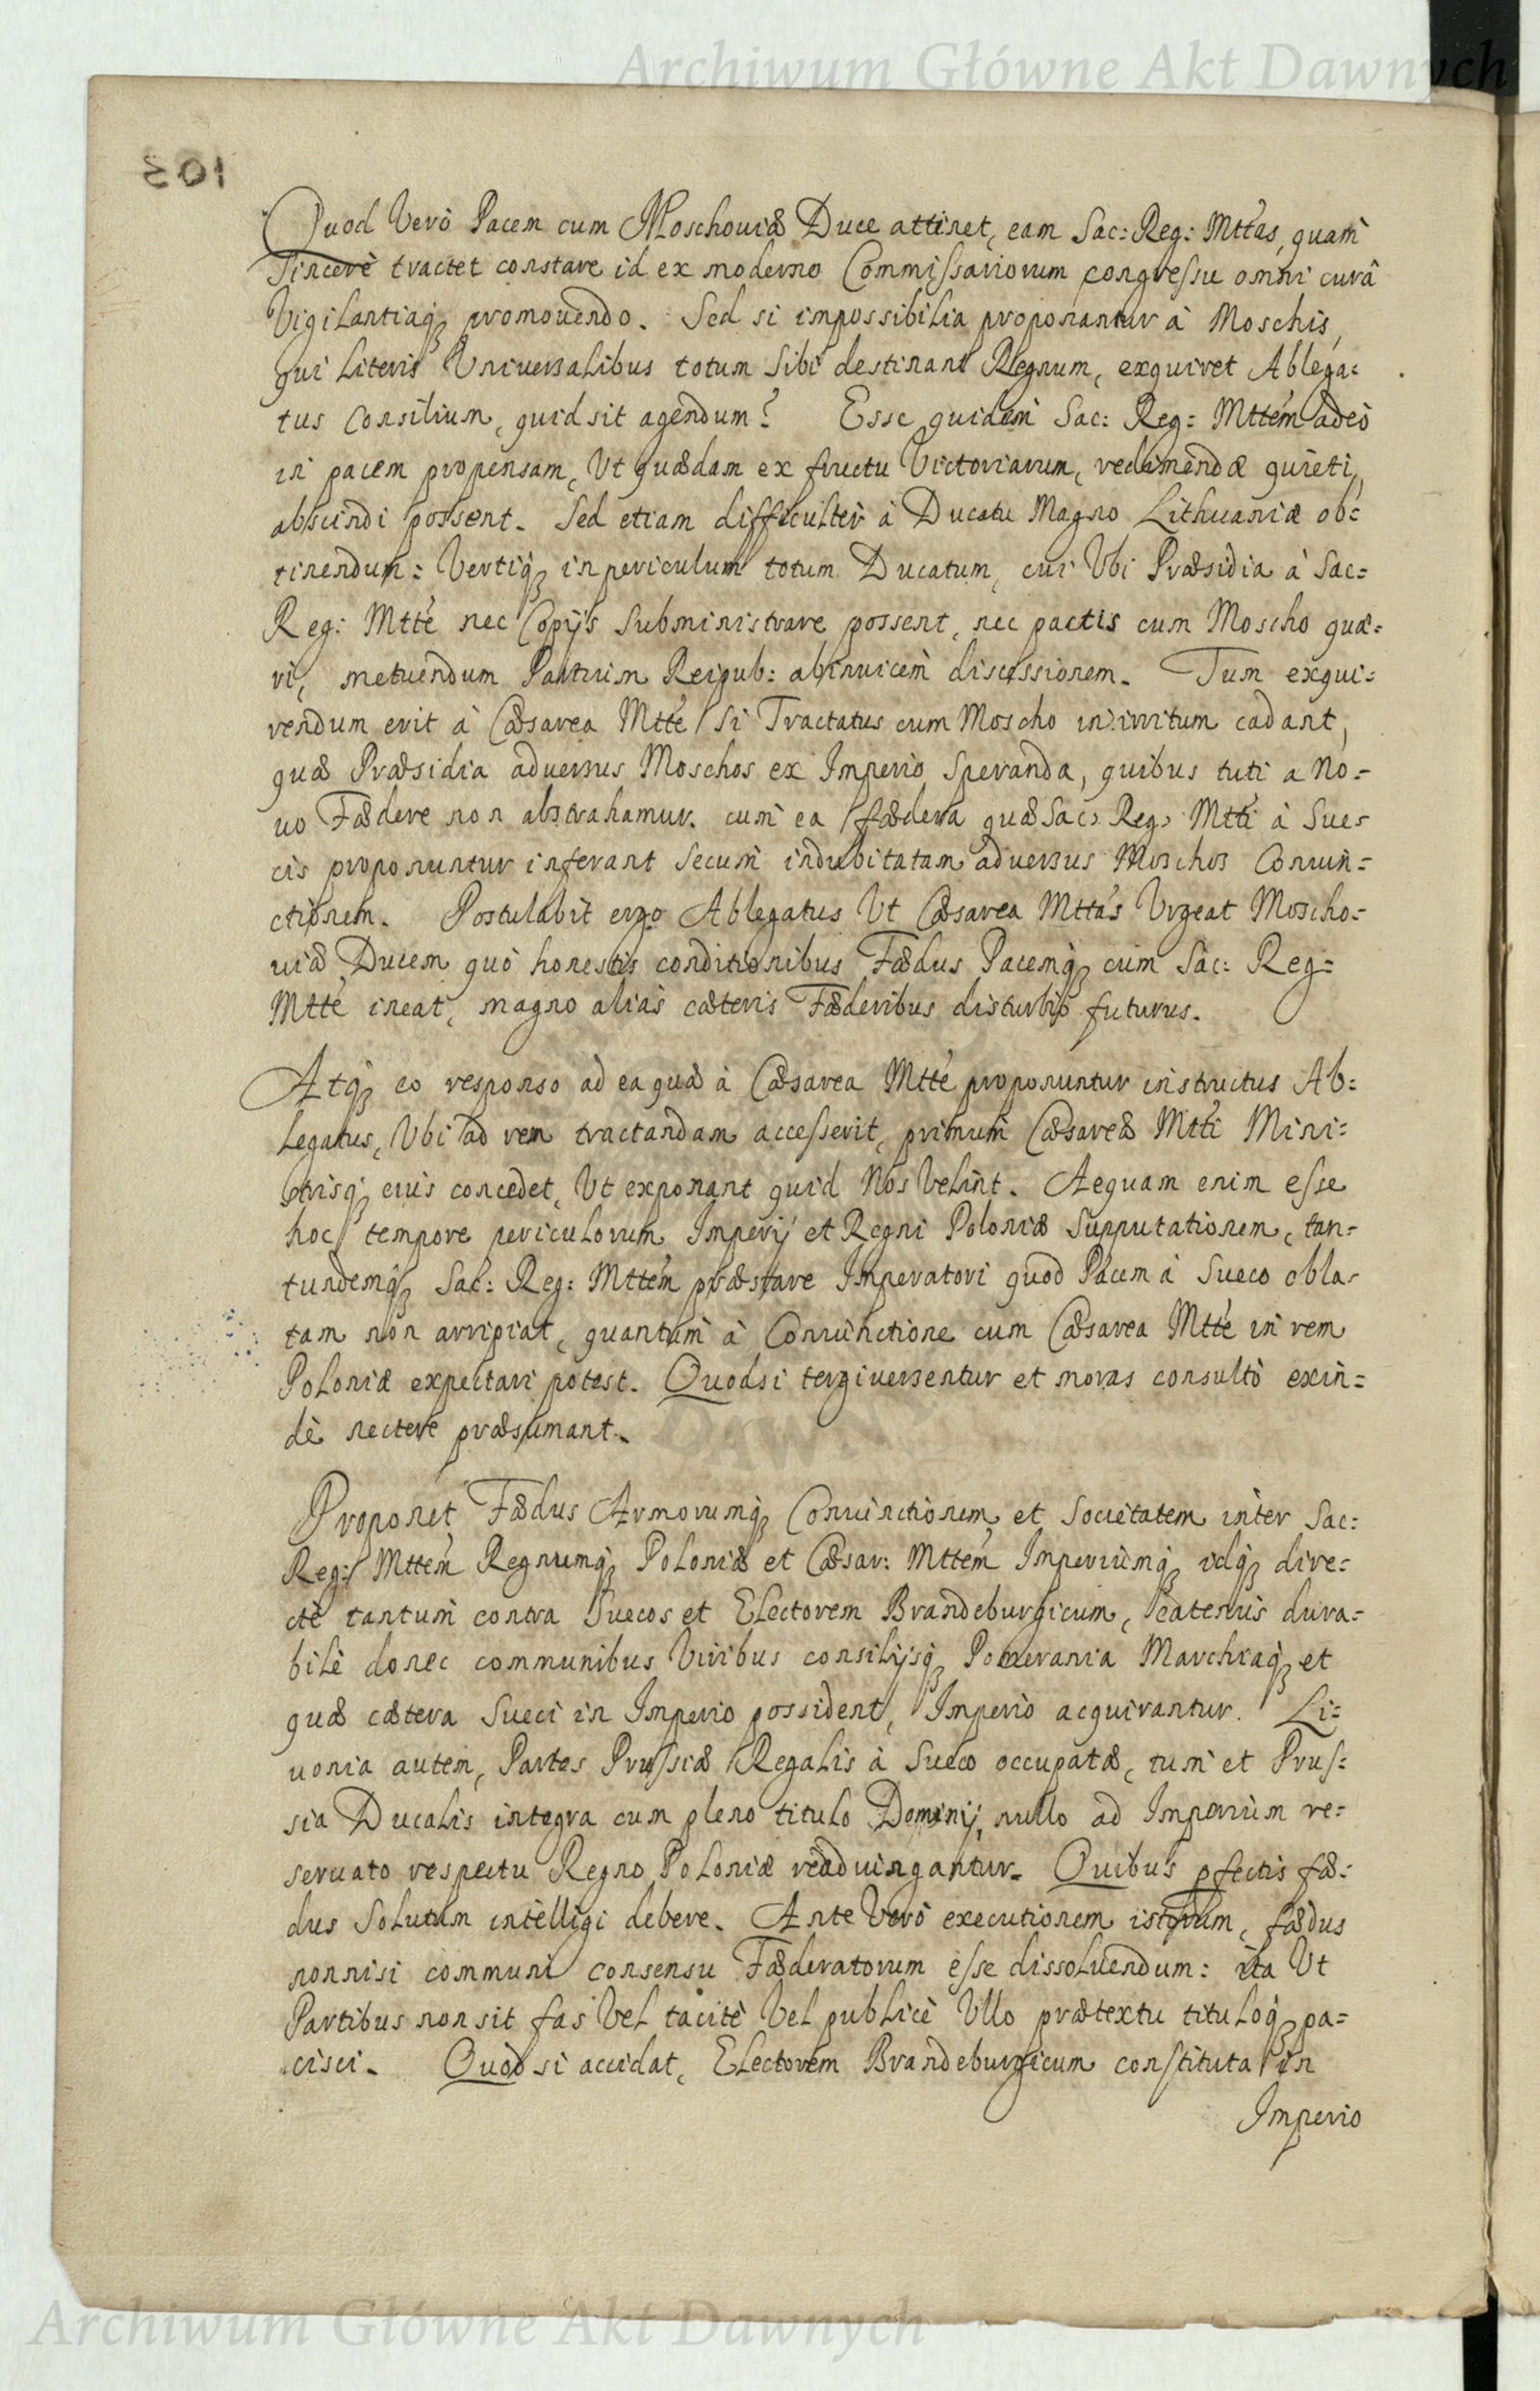 Archiwum Główne Akt Dawnych
103
Quod Verò Pacem cum Moschouiæ Duce attinet, eam Sac: Reg: Mttas, quam
sincerè tractet constare id ex moderno Commissariorum congressu omni curâ
Vigilantiaq; promouendo. Sed si impossibilia proponantur à Moschis,
qui Literis Vniuersalibus totum sibi destinant Regnum, exquiret Ablega=
tus Consilium, quid sit agendum? Esse quidem Sac: Reg: Mttem adeò
in pacem propensam, Vt quædam ex fructu Victoriarum, redimendæ quieti,
abscindi possent. Sed etiam difficulter à Ducatu Magno Lithuaniæ ob=
tinendum: Vertiq; in periculum totum Ducatum, cui Vbi Præsidia à Sac=
Reg: Mtte nec Copijs subministrare possent, nec pactis cum Moscho quæ=
ri, metuendum Partium Reipub: abinuicem discessionem. Tum exqui=
rendum erit à Cæsarea Mtte si Tractatus cum Moscho in irritum cadant,
quæ Præsidia aduersus Moschos ex Imperio speranda, quibus tuti a No=
uo Fædere non abstrahamur. cum ea fædera quæ Sac: Reg: Mtti à Sue=
cis proponuntur inferant secum indubitatam aduersus Moschos Coniun=
ctionem. Postulabit ergo Ablegatus Vt Cæsarea Mttas Vrgeat Moscho=
uiæ Ducem quò honestis conditionibus Fædus Pacemq; cum Sac: Reg=
Mtte ineat, magno aliàs cæteris Fæderibus disturbio futurus.
Atq; eo responso ad ea quæ à Cæsarea Mtte proponuntur instructus Ab=
legatus, Vbi ad rem tractandam accesserit, primum Cæsareæ Mtti Mini=
strisq; eius concedet, Vt exponant quid Nos Velint. Aequam enim esse
hoc tempore periculorum Imperij et Regni Poloniæ supputationem, tan=
tundemq; Sac: Reg: Mttem præstare Imperatori quod Pacem à Sueco obla=
tam non arripiat, quantum à Coniunctione cum Cæsarea Mtte in rem
Poloniæ expectari potest. Quodsi tergiuersentur et moras consultò exin=
dè nectere præsumant.
Proponet Fædus Armorumq; Coniunctionem et Societatem inter Sac:
Reg: Mttem Regnumq; Poloniæ et Cæsar: Mttem Imperiumq; idq; dire=
ctè tantum contra Suecos et Electorem Brandeburgicum, eatenus dura=
bile donec communibus Viribus consilijsq; Pomerania Marchiaq; et
quæ cætera Sueci in Imperio possident, Imperio acquirantur. Li=
uonia autem, Partes Prussiæ Regalis à Sueco occupatæ, tum et Prus=
sia Ducalis integra cum pleno titulo Dominij, nullo ad Imperium re=
seruato respectu Regno Poloniæ readiungantur. Quibus pfectis fæ=
dus Solutum intelligi debere. Ante Verò executionem istorum, fædus
nonnisi communi consensu Fæderatorum esse dissoluendum: ita Vt
Partibus non sit fas Vel tacitè Vel publicè Vllo prætextu tituloq; pa=
cisci. Quod si accidat, Electorem Brandeburgicum constituta in
Imperio
Archiwum Główne Akt Dawnych